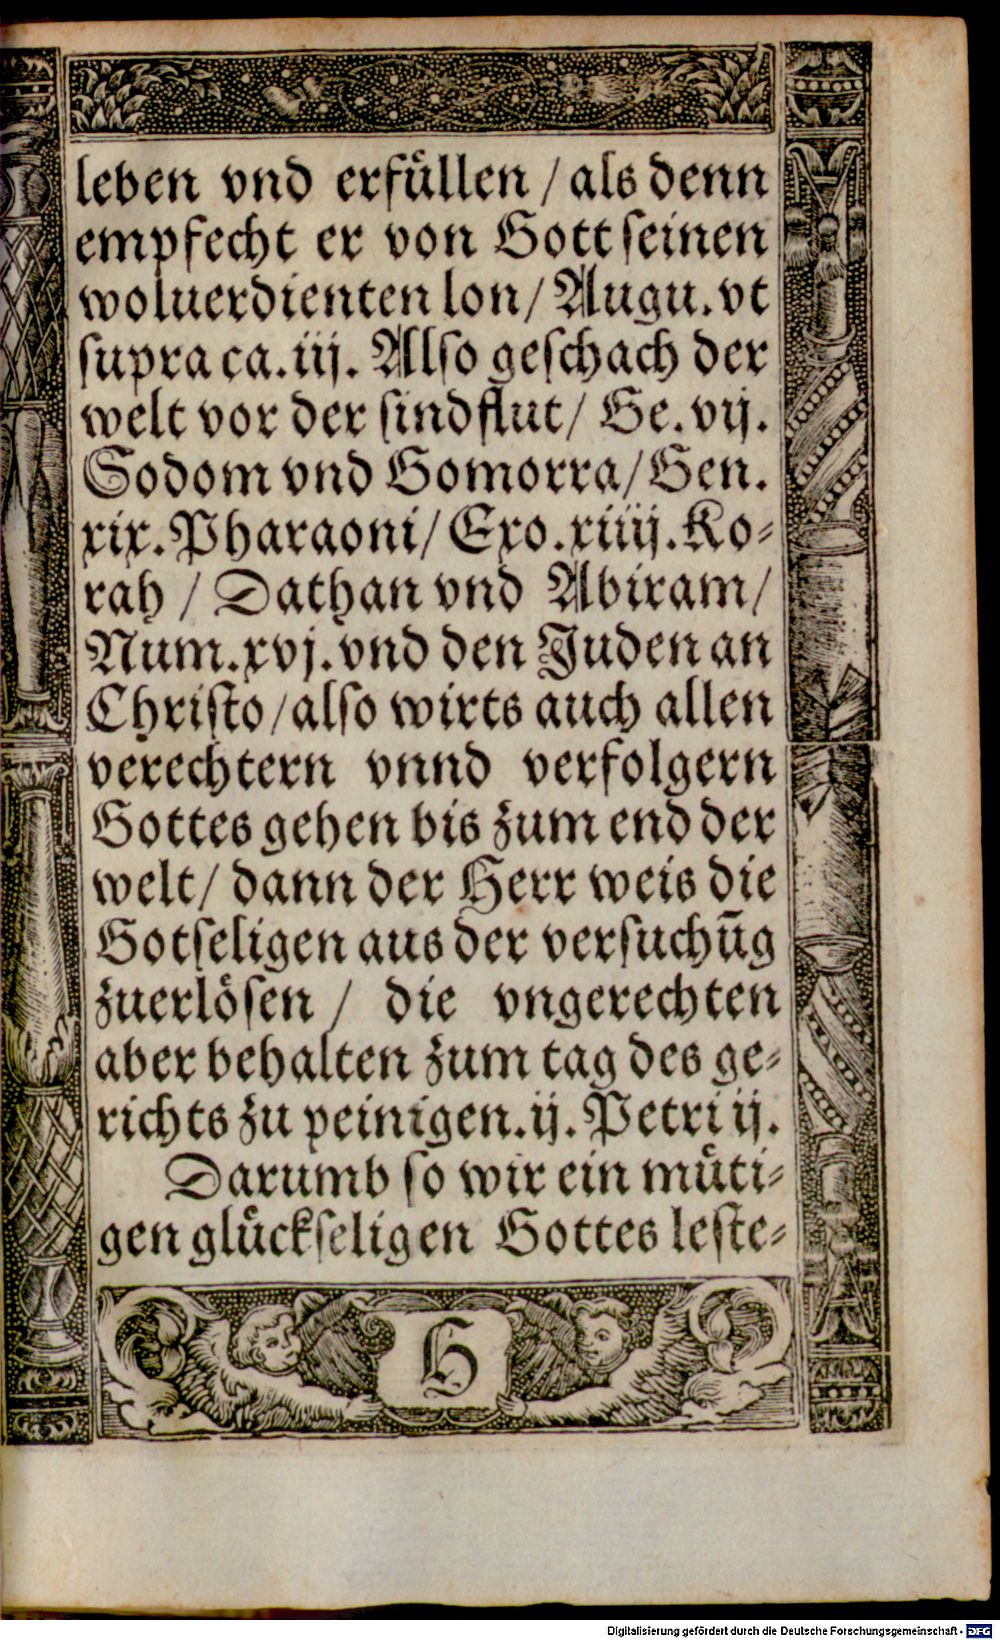 leben vnd erfüllen / als denn
empfecht er von Gott seinen
woluerdienten lon / Augu. vt
supra ca. iij. Also geschach der
welt vor der sindflut / Ge. vij.
Sodom vnd Gomorra / Gen.
xix. Pharaoni / Exo. xiiij. Ko-
rah / Dathan vnd Abiram /
Num. xvj. vnd den Juden an
Christo / also wirts auch allen
verechtern vnnd verfolgern
Gottes gehen bis zum end der
welt / dann der Herr weis die
Gotseligen aus der versuchūg
zuerlösen / die vngerechten
aber behalten zum tag des ge-
richts zu peinigen. ij. Petri ij.
Darumb so wir ein müti-
gen glückseligen Gottes leste-
G
Digitalisierung gefördert durch die Deutsche Forschungsgemeinschaft - DFG